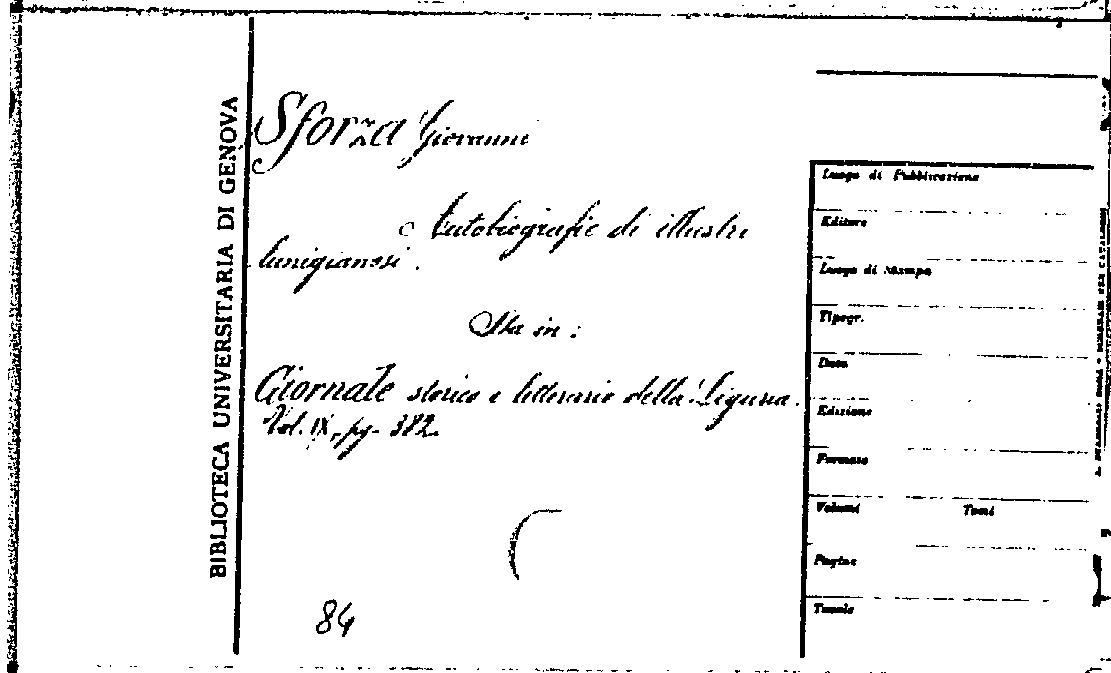 BIBLIOTECA UNIVERSITARIA DI GENOVA
Sforza Giovanni
Autobiografie di illustri
lunigianesi.
Sta in:
Giornale storico e letterario della Liguria.
Vol. IX, pg. 382.
84
Luogo di Pubblicazione
Editore
Luogo di Stampa
Tipogr.
Data
Edizione
Formato
Volumi Tomi
Pagine
Tavole